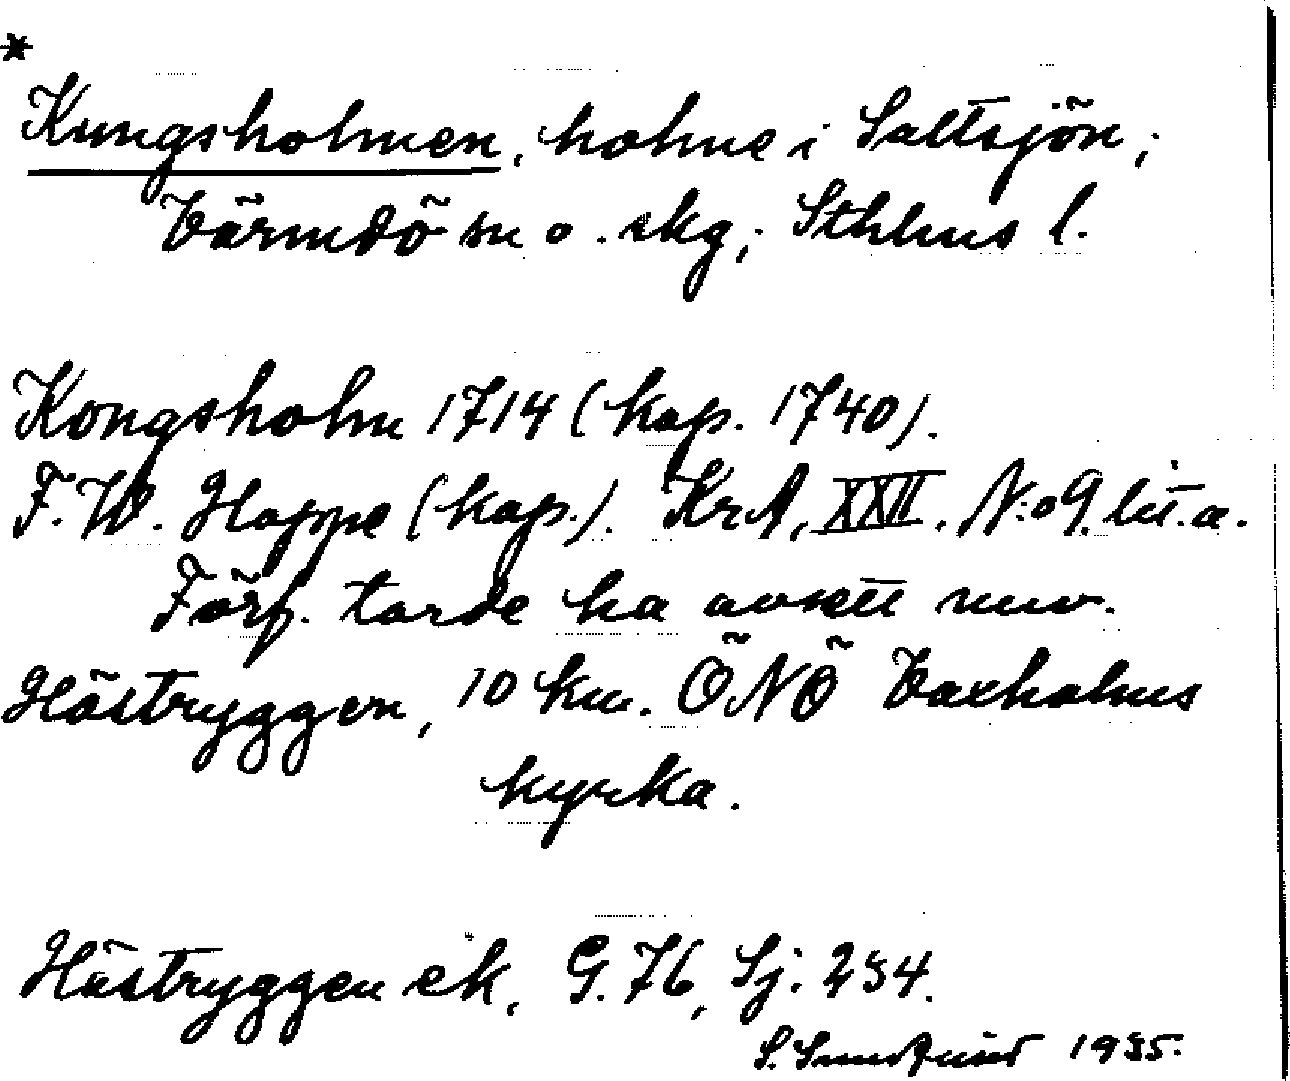 *
Kungsholmen, holme i Saltsjön;
Värmdö sn o. skg; Sthlms l.
Kongsholm 1714 (kop. 1740).
F. W. Hoppe (kop.). KrA, XXII. N:o 9. lit. a.
Förf. torde ha avsett nuv.
Hästryggen, 10 km. ÖNÖ Vaxholms
kyrka.
Hästryggen ek. G. 76, Sj: 254.
S. 1935.